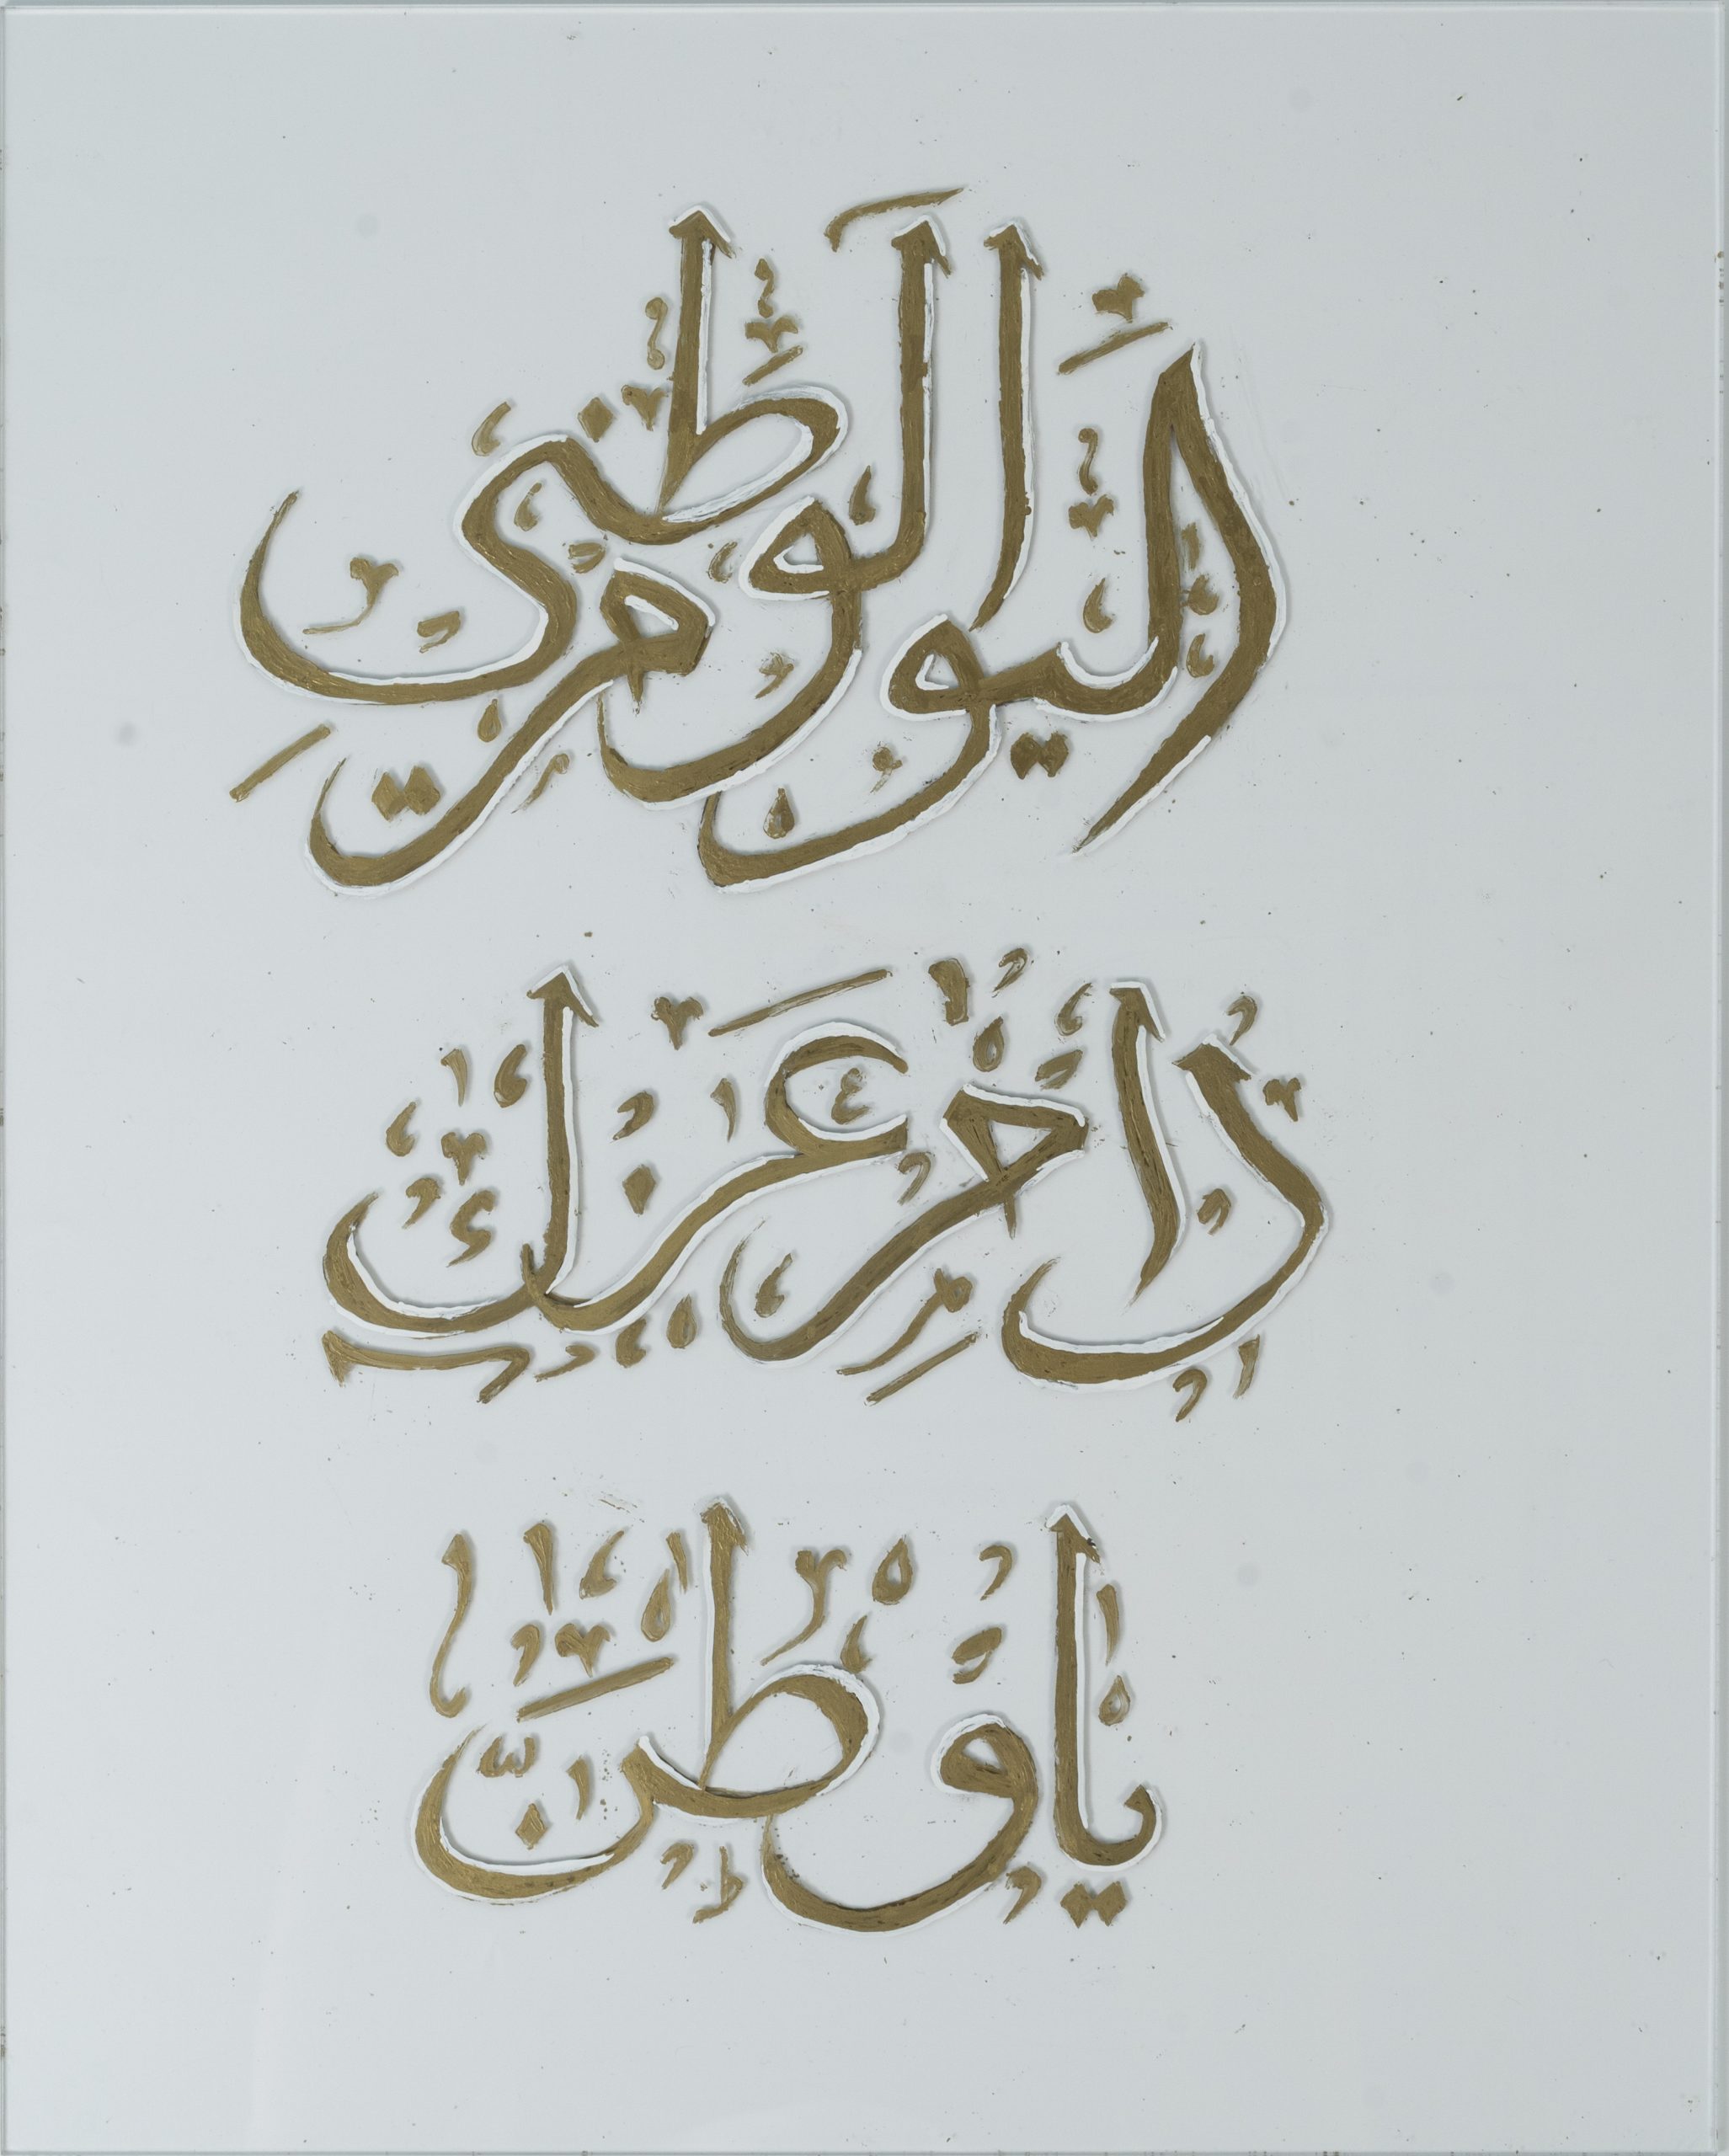 اليوم الوطني
دام عزك
يا وطن